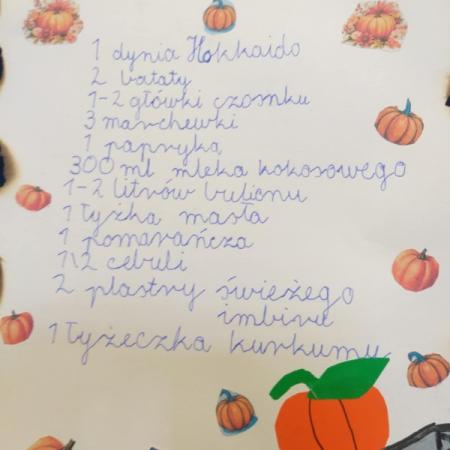 1 dynia Hokkaido
2 bataty
1-2 główki czosnku
3 marchewki
1 papryka
300 ml mleka kokosowego
1-2 litrów bulionu
1 łyżka masła
1 pomarańcza
1\2 cebuli
2 plastry świeżego
imbiru
1 łyżeczka kurkumy